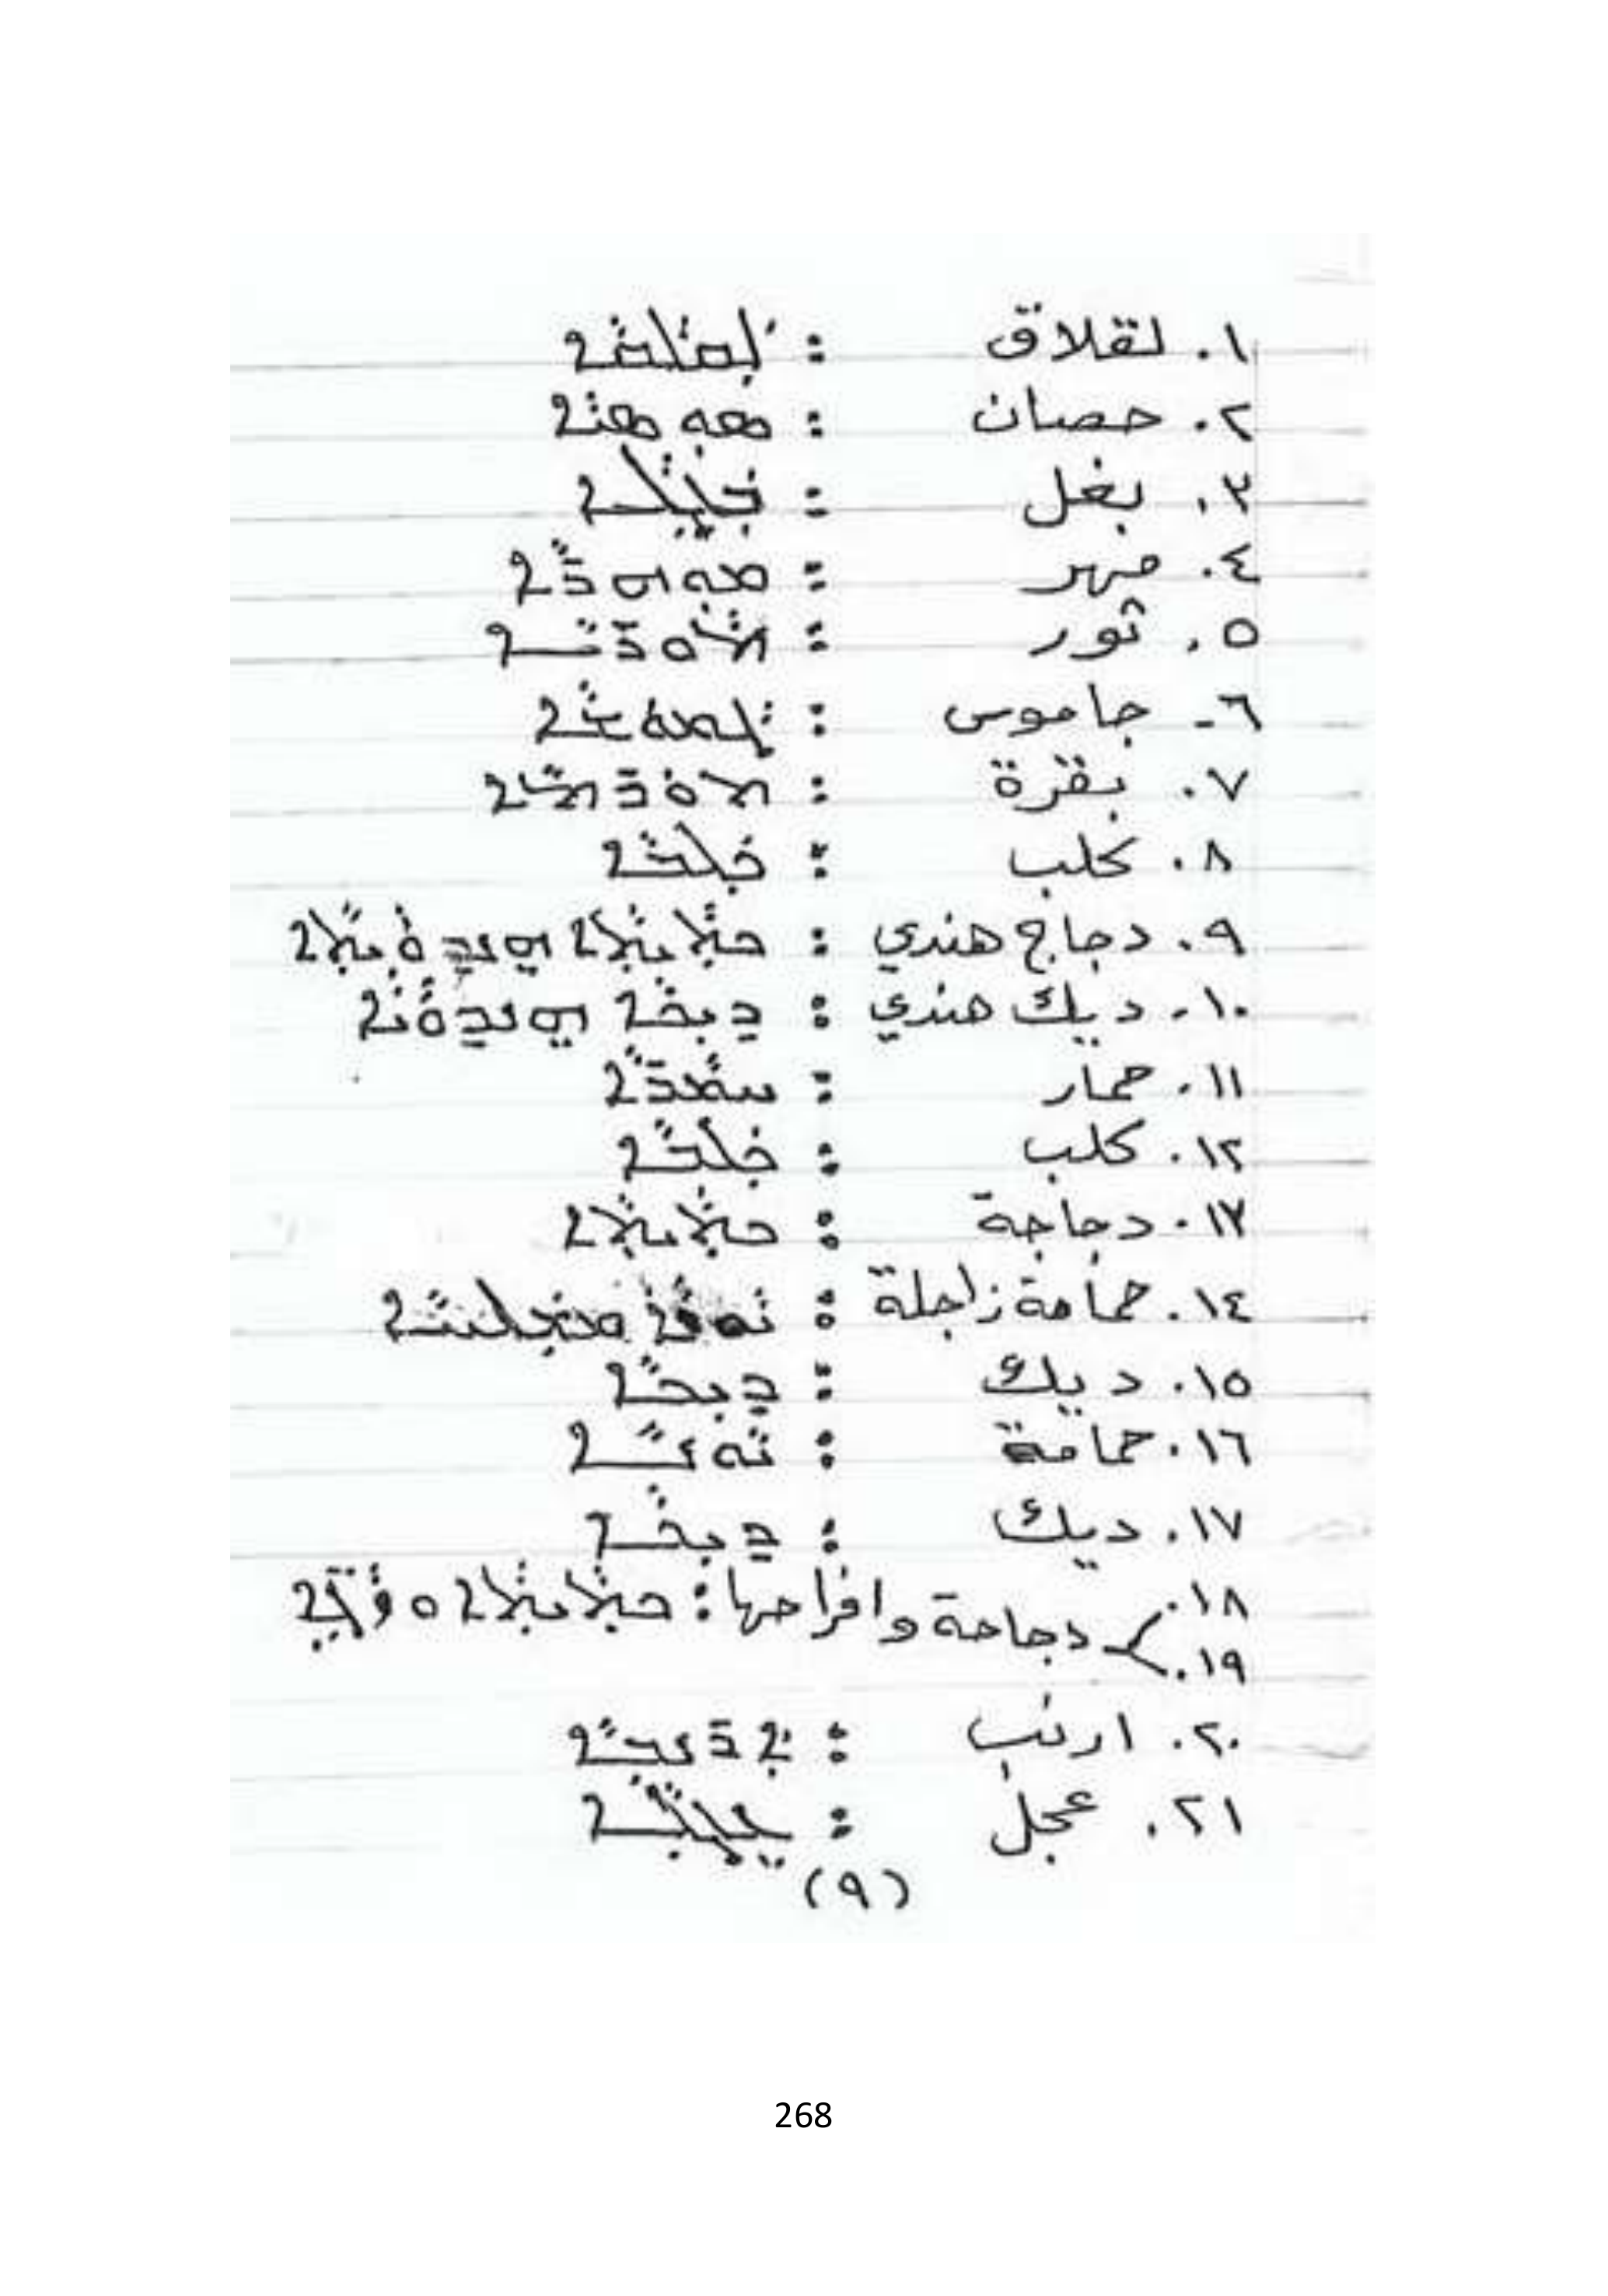 ١. لقلاق : ܠܩܠܩܐ
٢. حصان : ܣܘܣܢܐ
٣. بغل : ܟܘܕܢܐ
٤. مهر : ܡܘܗܪܐ
٥. ثور : ܬܘܪܐ
٦- جاموس : ܓܡܘܫܐ
٧. بقرة : ܬܘܪܬܐ
٨. كلب : ܟܠܒܐ
٩. دجاج هندي : ܟܬܝܬܐ ܗܢܕܘܝܬܐ
١٠. ديك هندي : ܕܝܟܐ ܗܢܕܘܢܐ
١١. حمار : ܚܡܪܐ
١٢. كلب : ܟܠܒܐ
١٣. دجاجة : ܟܬܝܬܐ
١٤. حمامة زاجلة :
١٥. ديك : ܕܝܟܐ
١٦. حمامة : ܝܘܢܐ
١٧. ديك : ܕܝܟܐ
١٨. ١٩. دجاجة وافراخها : ܟܬܝܬܐ ܘ
٢٠. ارنب : ܐܪܢܒܐ
٢١. عجل : ܥܓܠܐ
(٩)
268